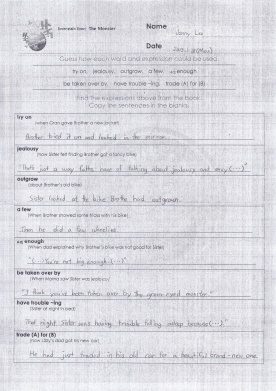 Berenstain Bears The Monster
Name Jenny Lee
Date
Guess how each word and expression could be used.
try on, jealousy, outgrow, a few, adj enough
be taken over by, have trouble -ing, trade (A) for (B)
Find the expressions above from the book.
Copy the sentences in the blanks.
try on
(when Gran gave Brother a new jacket)
Brother tried it on and looked in the mirror.
jealousy
(how Sister felt finding Brother got a fancy bike)
outgrow
(about Brother's old bike)
Sister looked at the bike Brother had outgrown.
a few
(When Brother showed some tricks with his bike)
Then he did a few wheelies
adj enough
(When Dad explained why Brother's bike was not good for Sister)
"(...) You're not big enough (...)"
be taken over by
(When Mama saw Sister was jealousy)
"I think you've been taken over by the green-eyed monster."
have trouble -ing
(Sister at night in bed)
That night, Sister was having trouble falling asleep because (...)
trade (A) for (B)
(how Dad's and got his new car)
He had just traded in his old car for a beautiful brand-new one.